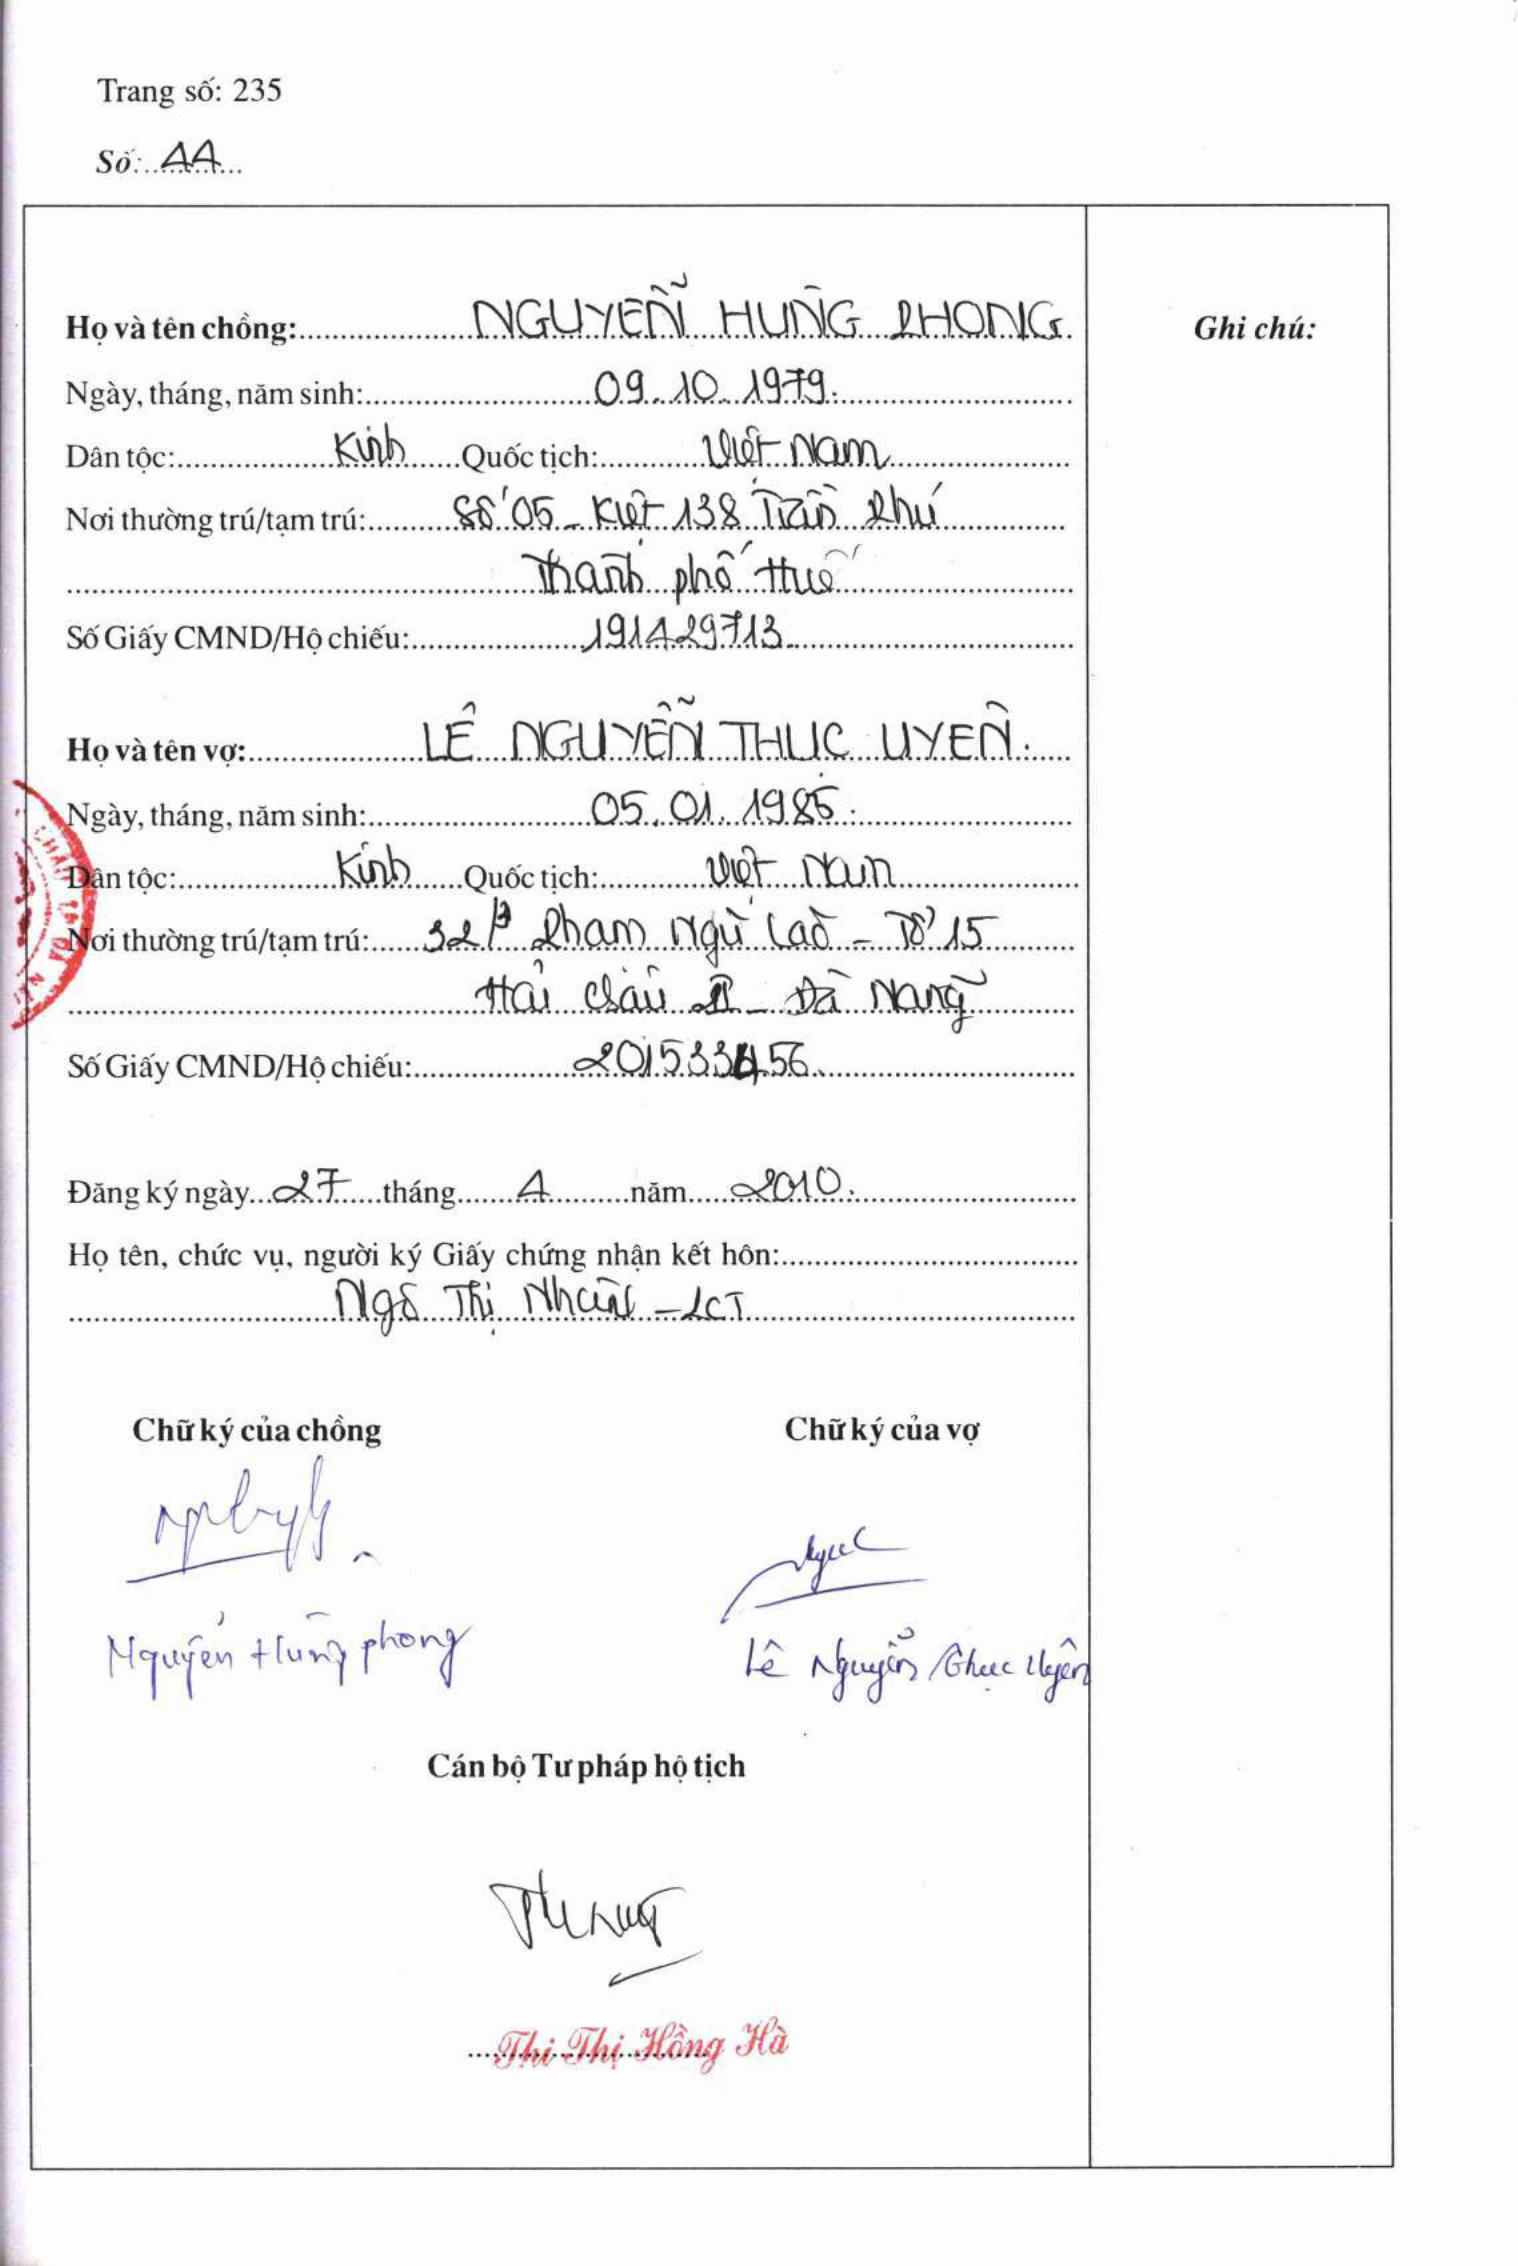 Trang số: 235
Số: 44
Họ và tên chồng: NGUYỄN HÙNG PHONG
Ghi chú:
Ngày, tháng, năm sinh: 09.10.1979.
Dân tộc: Kinh Quốc tịch: Việt Nam
Nơi thường trú/tạm trú: Số 05 - Kiệt 138 Trần Phú
Thành phố Huế
Số Giấy CMND/Hộ chiếu: 191429713
Họ và tên vợ: LÊ NGUYỄN THỤC UYÊN.
Ngày, tháng, năm sinh: 05.01.1985.
Dân tộc: Kinh Quốc tịch: Việt Nam
Nơi thường trú/tạm trú: Phạm Ngũ Lão - Tổ 15
Hải Châu II - Đà Nẵng
Số Giấy CMND/Hộ chiếu: 201533456
Đăng ký ngày 27 tháng 4 năm 2010.
Họ tên, chức vụ, người ký Giấy chứng nhận kết hôn:
Ngô Thị Nhuần -
Chữ ký của chồng
Chữ ký của vợ
Nguyễn Hùng Phong
Lê Nguyễn Thục Uyên
Cán bộ Tư pháp hộ tịch
Thi Thị Hồng Hà